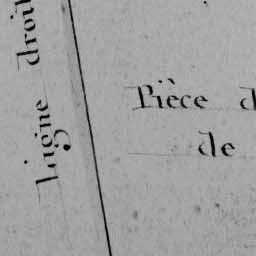 Ligne droit
Pièce d
de